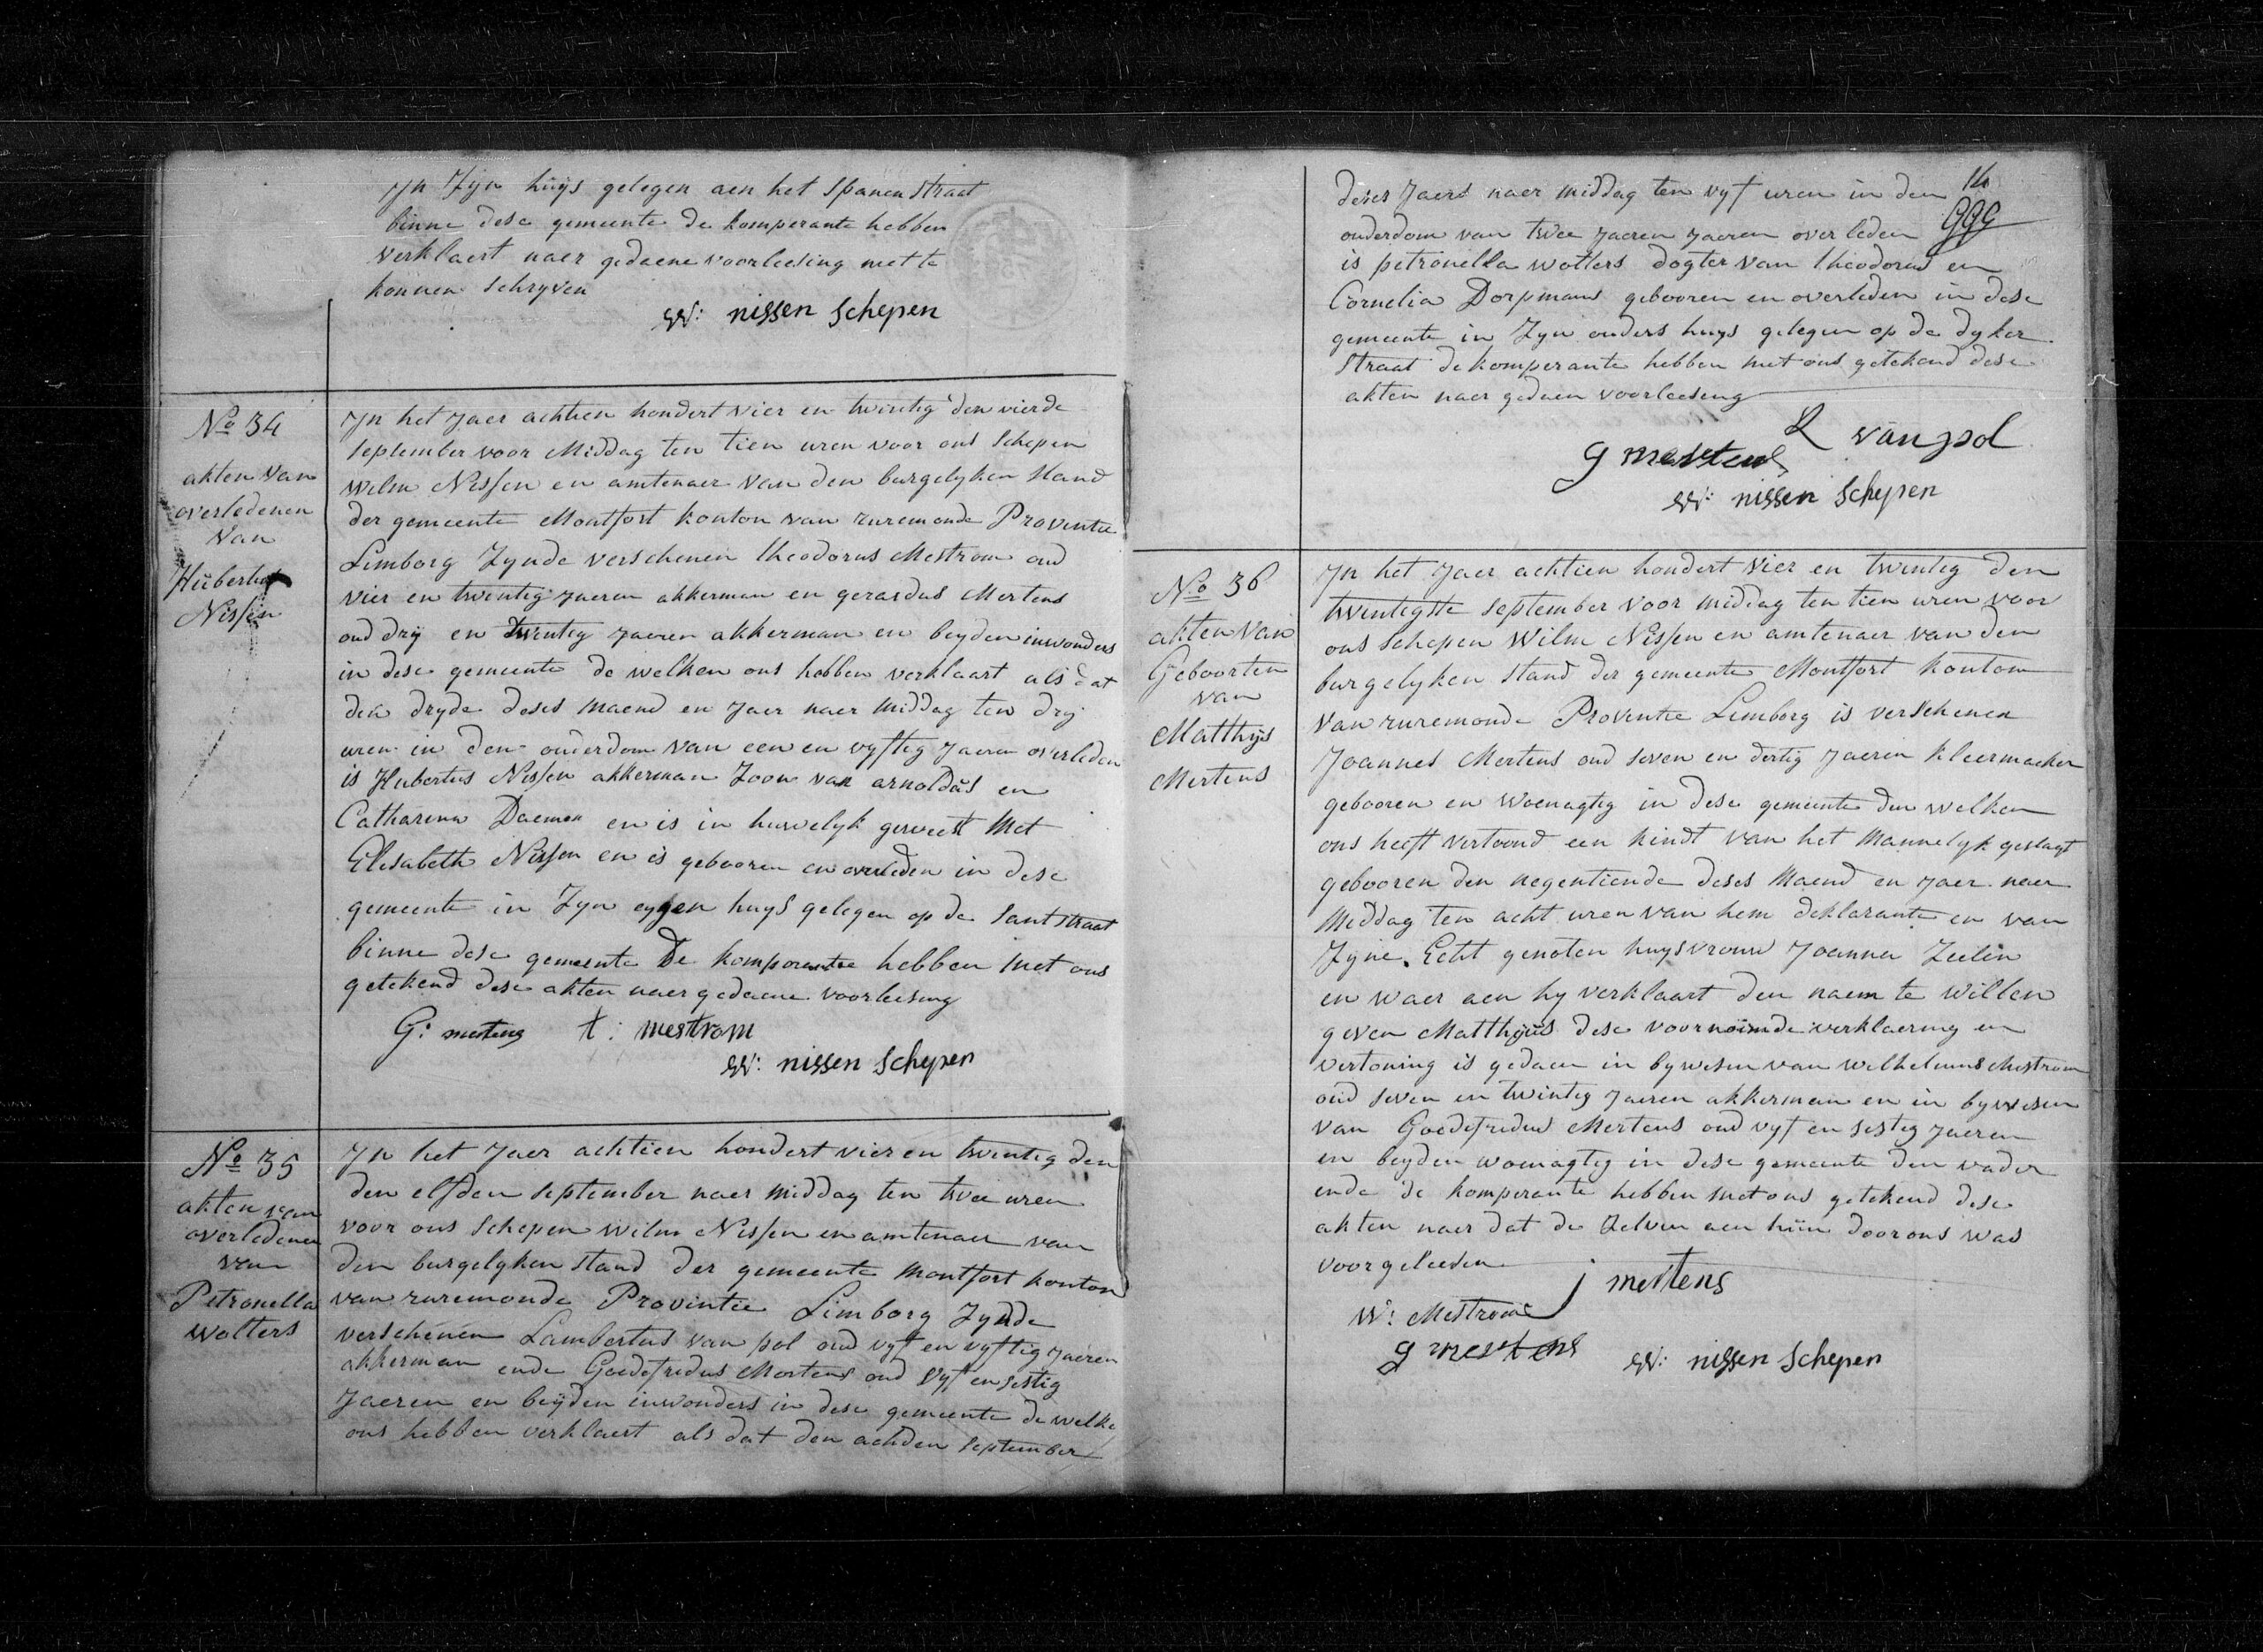 Jn Zijn huijs gelegen aen het Spanen Straat
binne dese gemeente de komperante hebben
verklaert naer gedaene voorleesing niet te
konnen Schryven
W: nissen Schepen
No 34
akten van
overledenen
van
Hubertus
Nissen
Jn het Jaer achtien hondert vier en twintig den vierde
September voor Middag ten tien uren voor ons Schepen
Wilm Nissen en amtenaer van den burgelyken Stand
der gemeente Montfort konton van ruremonde Proventie
Limborg Zynde verschenen theodorus Mestrom oud
vier en twintig jaeren akkerman en gerardus Mertens
oud drÿ en twintig jaeren akkerman en beyden inwonders
in dese gemeente de welken ons hebben verklaart als dat
den dryde deses maend en Jaer naer middag ten drÿ
uren in den ouderdom van een en vyftig Jaeren overleden
is Hubertus Nissen akkerman Zoon van arnoldus en
Catharina Daemen en is in huwelyk geweest Met
Elisabeth Nissen en is gebooren en overleden in dese
gemeente in Zyn eygen huys gelegen op de Santstraat
binne dese gemeente De komporentee hebben met ons
getekend dese akten naer gedaene voorleesing
G: mertens t: mestrom
W: nissen Schepen
No 35
akten van
overledenen
van
Petronella
Wolters
Jn het Jaer achtien hondert vier en twintig den
den elfden September naer middag ten twee uren
voor ons Schepen Wilm Nissen en amtenaer van
den burgelyken Stand der gemeente Montfort konton
van ruremonde Provintie Limborg Zynde
verschenen Lambertus van pol oud vyf en vyftig jaeren
akkerman ende Goedefridus Mertens oud Vyf en sestig
Jaeren en beÿden inwonders in dese gemeente de welke
ons hebben verklaert als dat den achden September
deses Jaers naer middag ten vyf uren in den
ouderdom van twee jaeren jaeren overleden
is petronella wolters dogter van theodorus en
Cornelia Dorpmans gebooren en overleden in dese
gemeente in Zyn ouders huys gelegen op de dyker
Straat de komperante hebben met ons getekend dese
akten naer gedaen voorleeseng
L van pol
g mertens
W: nissen Schepen
No 36
akten van
Geboorten
van
Matthijs
Mertens
Jn het Jaer achtien hondert Vier en twintig den
twintegste September voor middag ten tien uren voor
ons Schepen Wilm Nissen en amtenaer van den
burgelyken Stand der gemeente Montfort konton
van ruremonde Proventie Limborg is verschenen
Joannes Mertens oud seven en dertig Jaeren kleermaeker
gebooren en woenagtig in dese gemeente den welken
ons heeft vertoond een kindt van het mannelyk geslagt
gebooren den negentiende deses Maend en jaer naer
Middag ten acht uren van hem deklarante en van
Zyne Echt genoten huysvrouw Joanna Zeelin
en waer aen hy verklaart den naem te willen
geven Matthijs dese voornoimde verklaering en
vertoning is gedaen in bywesen van Wilhelmus Mestrom
oud seven en twintig jaeren akkerman en in bywesen
van Goedefridus Mertens oud vyf en sestig jaeren
en beyden woenagtig in dese gemeente den vader
ende de komperante hebben met ons getekend dese
akten naer dat de Zelven aen hun door ons was
voorgeleesen
j mertens
W: Mestrom
g mertens
W: nissen Schepen